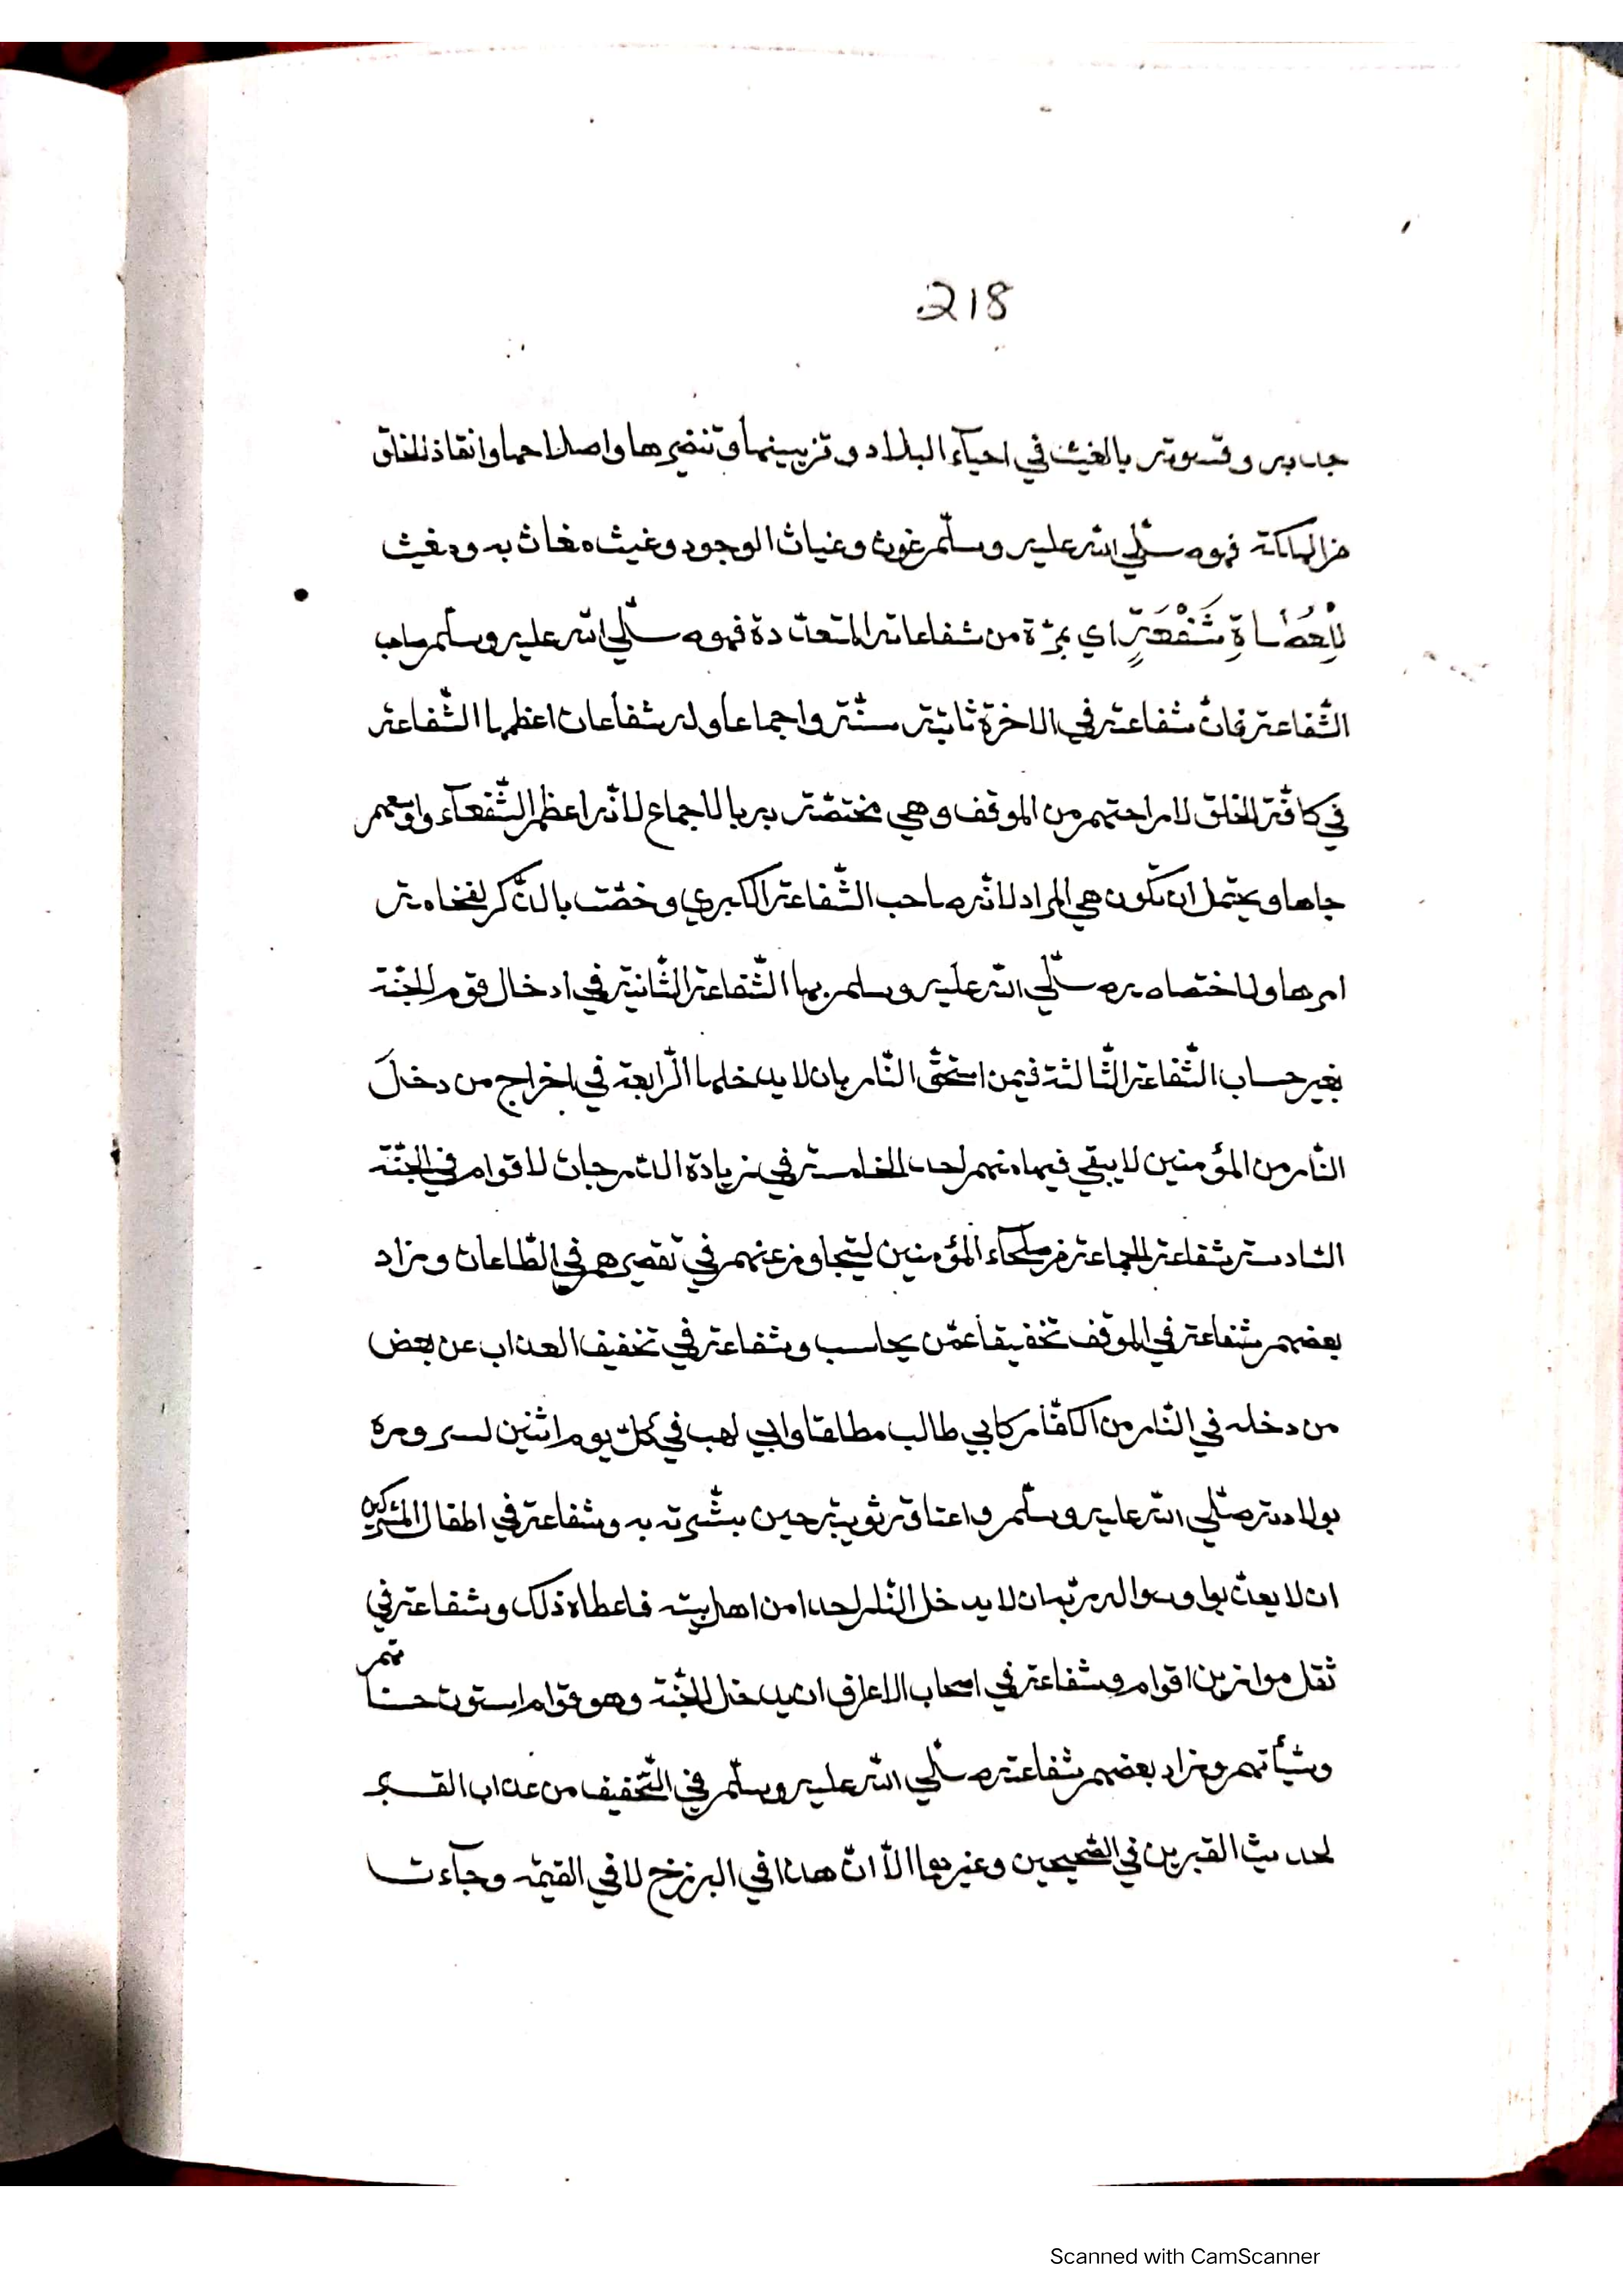 218
جدبه وقسوته بالغيث في احيآء البلاد وتزيينها وتنضيرها واصلاحها وانقاذ الخلق
من الهلكة فهو صلّي الله عليه وسلّم غوث وغياث الوجود وغيث مغاث به ومغيث
لِلْعُصَاةِ شَفْعَةٍ اي بمرّة من شفاعاته المتعدّدة فهو صلّي الله عليه وسلّم صاحب
الشّفاعة فانّ شفاعته في الاخرة ثابتة سنّة واجماعا وله شفاعات اعظمها الشّفاعة
في كافّة الخلق لاراحتهم من الموقف وهي مختصّة به بالاجماع لانّه اعظم الشّفعآء واوسعهم
جاها ويحتمل ان تكون هي المراد لانّه صاحب الشّفاعة الكبري وخصّت بالذّكر لفخامة
امرها ولاختصاصه صلّي الله عليه وسلم بها الشّفاعة الثّانية في ادخال قوم الجنّة
بغير حساب الشّفاعة الثّالثة فيمن استحقّ النّار بان لا يدخلها الرّابعة في اخراج من دخلَ
النّار من المؤمنين لا يبقي فيها منهم احد الخامسة في زيادة الدّرجات لاقوام في الجنّة
السّادسة شفاعة لجماعة من صلحآء المؤمنين ليتجاوز عنهم في تقصيرهم في الطّاعات وزاد
بعضهم شفاعة في الموقف تخفيفا عمّن يحاسب وشفاعة في تخفيف العذاب عن بعض
من دخله في النّار من الكفّار كابي طالب مطلقا وابي لهب في كلّ يوم اثنين لسروره
بولادته صلّي الله عليه وسلّم واعتاقه ثويبة حين بشّرته به وشفاعة في اطفال المشركين
ان لا يعذّبوا وسواله ربّه ان لا يدخل النّار احدا من اهل بيته فاعطاه ذلك وشفاعة في
ثقل موازين اقوام وشفاعة في اصحاب الاعراف ان يدخل الجنّة وهو قوام استوت حسناتهم
وسيّأتهم وزاد بعضهم شفاعته صلّي الله عليه وسلّم في التّخفيف من عذاب القبر
لحديث القبرين في الصّحيحين وغيرهما الاّ انّ هذا في البرزخ لا في القيمة وجآءت
Scanned with CamScanner